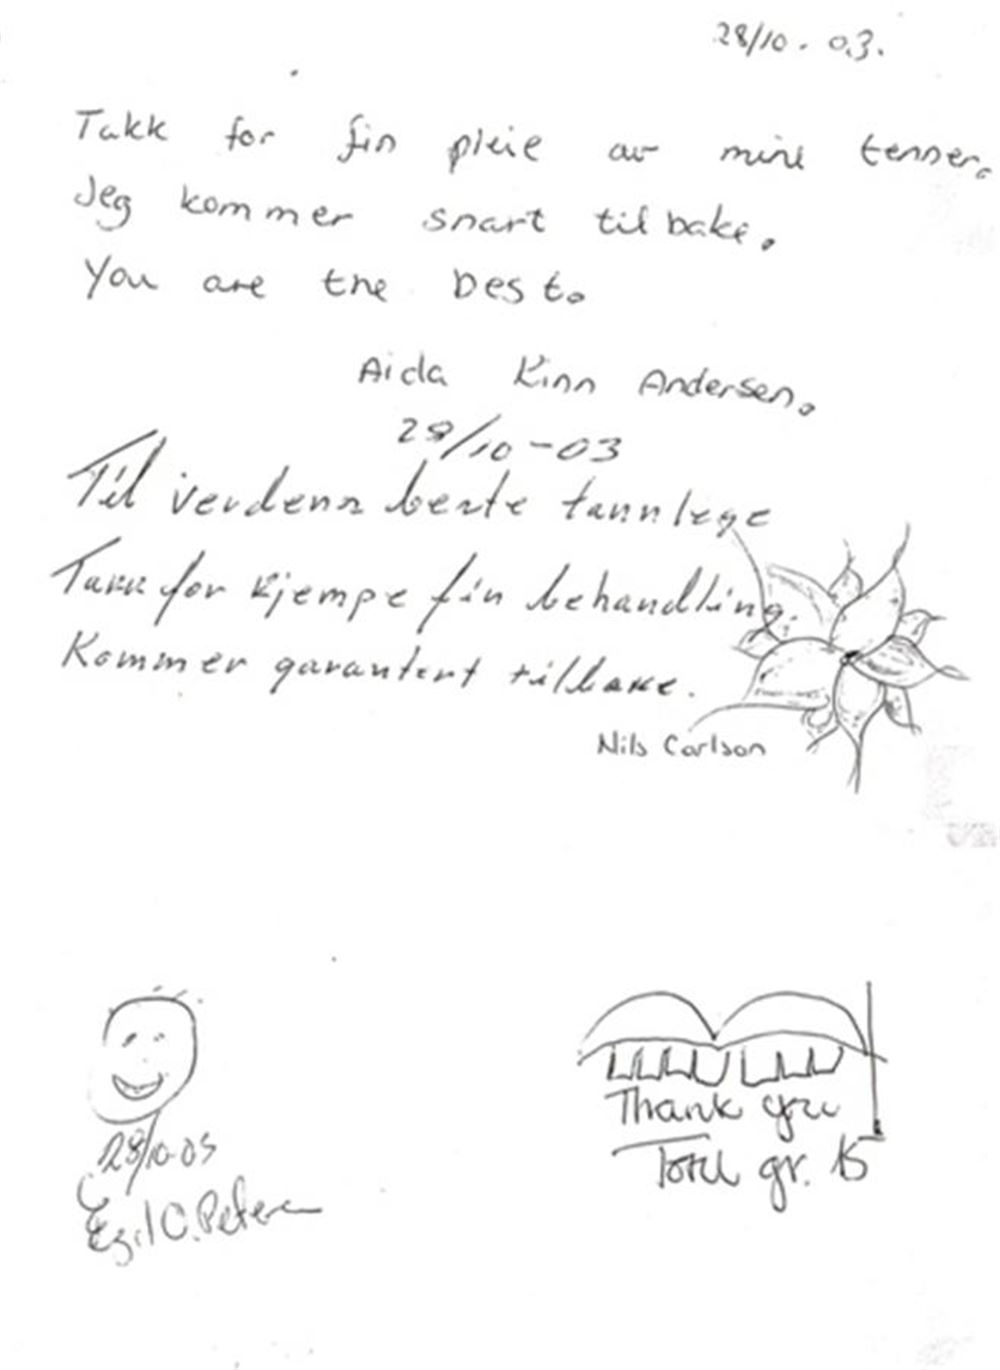 28/10. 03.
Takk for fin pleie av mine tenner.
Jeg kommer snart tilbake.
You are the best.
Aida Kinn Andersen.
28/10-03
Til verdens beste tannlege
Takk for kjempe fin behandling.
Kommer garantert tilbake.
Nils Carlson
Thank you
gr. 15
28/10-03
Egil C. Peter